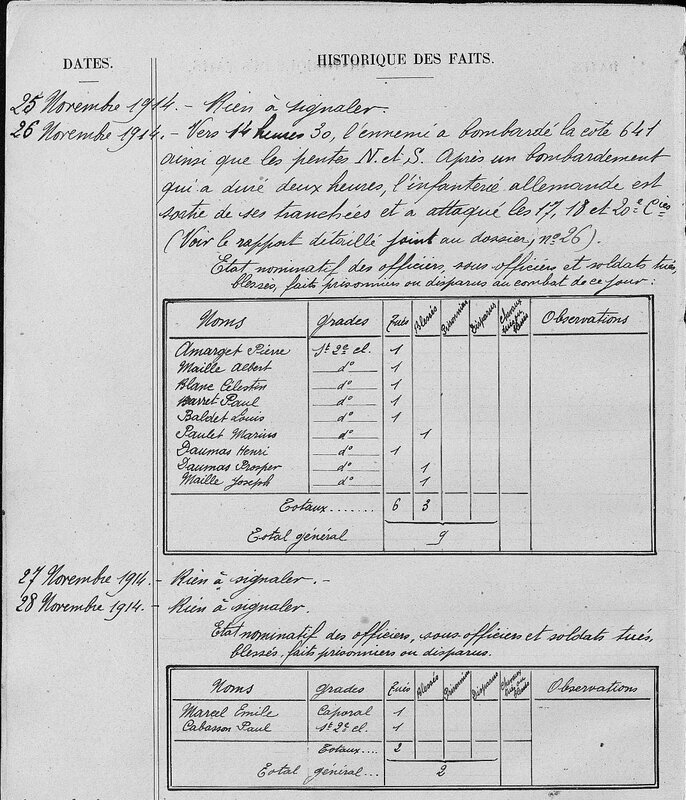 DATES.
HISTORIQUE DES FAITS.
25 Novembre 1914. - Rien à signaler.
26 Novembre 1914. - Vers 14 heures 30, l'ennemi a bombardé la cote 641
ainsi que les pentes N. et S. Après un bombardement
qui a duré deux heures, l'infanterie allemande est
sortie de ses tranchées et a attaqué les 17, 18 et 20e Cies
(Voir le rapport détaillé joint au dossier, no 26).
Etat nominatif des officiers, sous officiers et soldats tués,
blessés, faits prisonniers ou disparus au combat de ce jour :
Noms Grades Tués Blessés Prisonniers Disparus Chevaux tués ou blessés Observations
Amarget Pierre St 2e cl. 1
Maille Albert do 1
Blanc Célestin do 1
Barret Paul do 1
Baldet Louis do 1
Paulet Marius do 1
Daumas Henri do 1
Daumas Prosper do 1
Maille Joseph do 1
Totaux........ 6 3
Total général 9
27 Novembre 1914. - Rien à signaler. -
28 Novembre 1914. - Rien à signaler.
Etat nominatif des officiers, sous officiers et soldats tués,
blessés, faits prisonniers ou disparus.
Noms Grades Tués Blessés Prisonniers Disparus Chevaux tués ou blessés Observations
Marcel Emile Caporal 1
Cabasson Paul St 2e cl. 1
Totaux.... 2
Total général.... 2